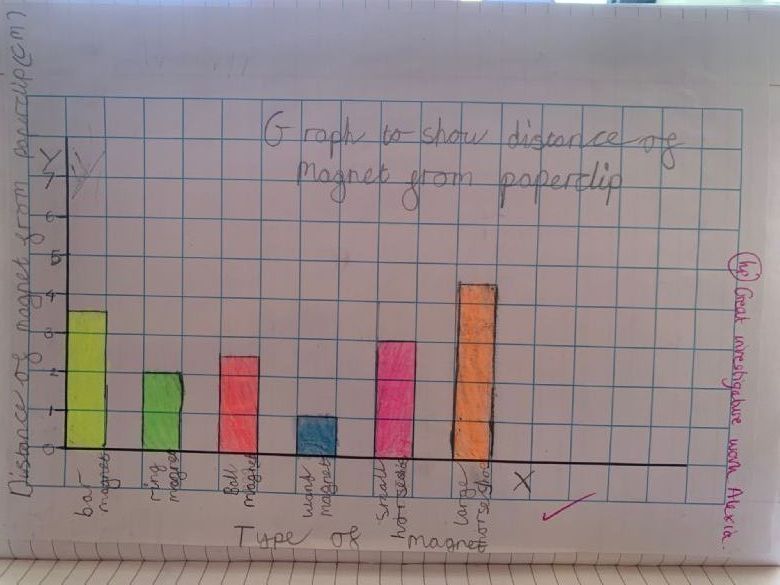 Graph to show distance of
magnet from paperclip
Distance of magnet from paperclip (cm)
Y
7
6
5
4
3
2
1
0
bar
magnet
ring
magnet
Ball
magnet
wand
magnet
Small
horseshoe
large
horseshoe
X
Type of magnet
hp Great investigative work Alexia.